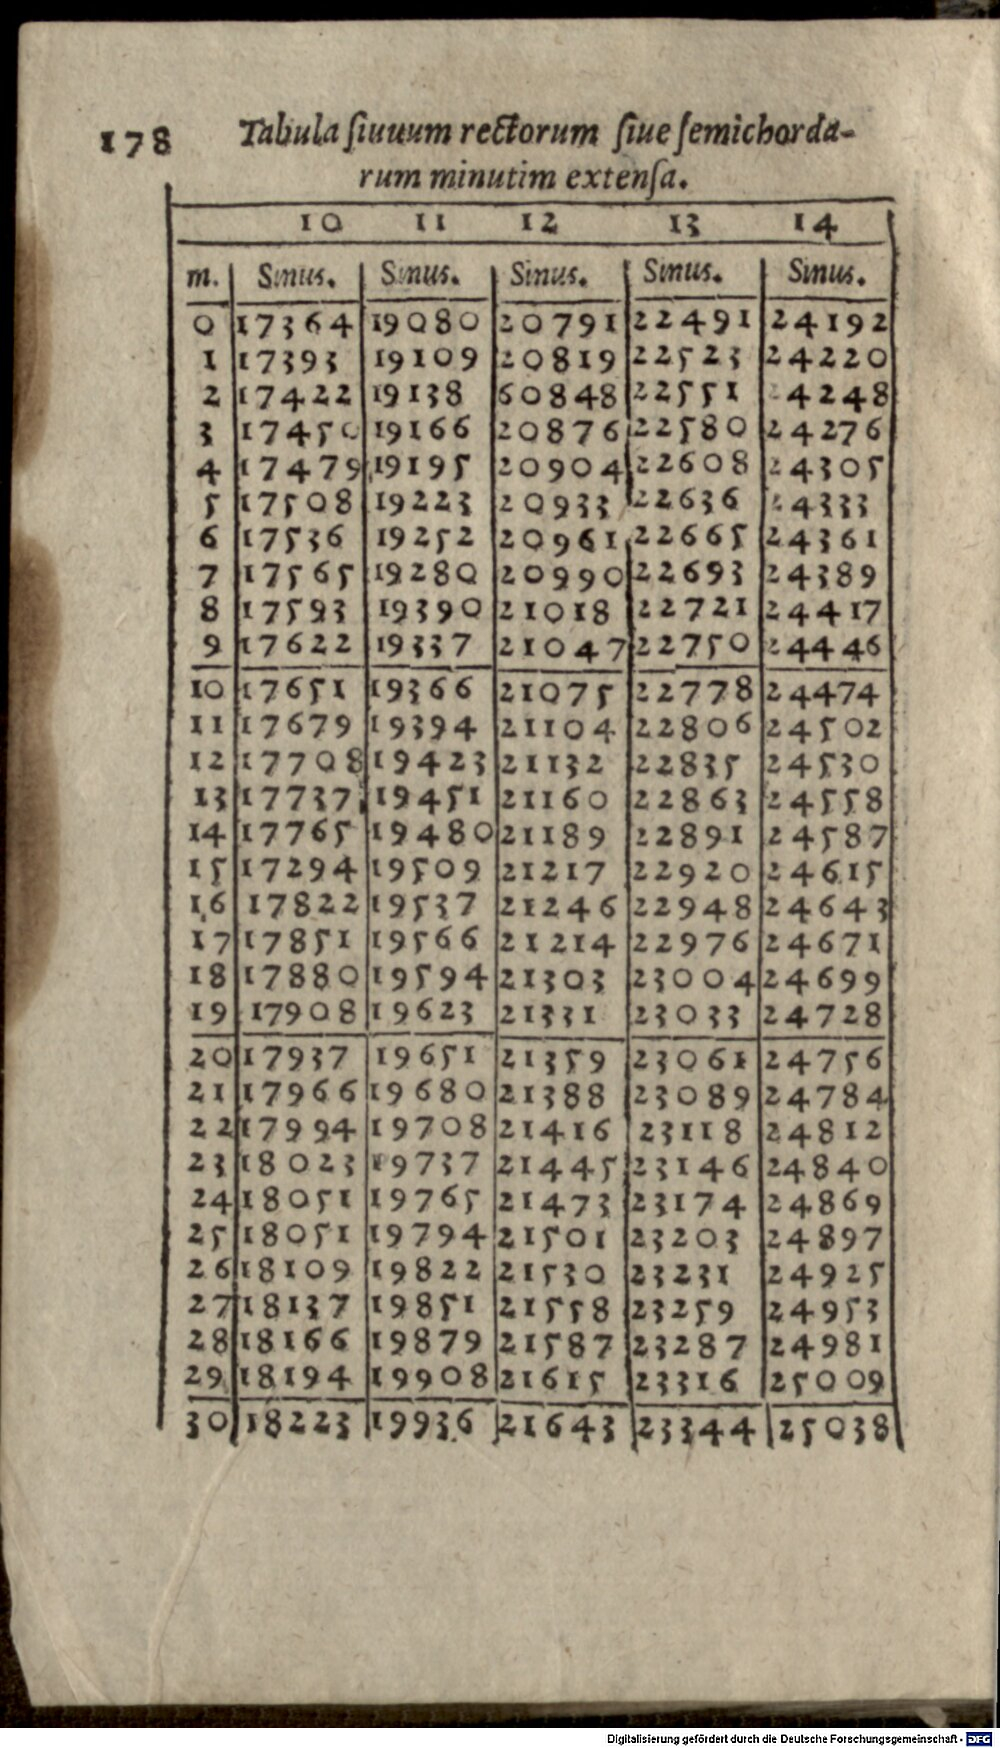 178 Tabula ſiuuum rectorum ſiue ſemichorda-
rum minutim extenſa.
10 11 12 13 14
m. Sinus. Sinus. Sinus. Sinus. Sinus.
0 17364 19080 20791 22491 24192
1 17393 19109 20819 22523 24220
2 17422 19138 60848 22551 24248
3 17450 19166 20876 22580 24276
4 17479 19195 20904 22608 24305
5 17508 19223 20933 22636 24333
6 17536 19252 20961 22665 24361
7 17565 19280 20990 22693 24389
8 17593 19390 21018 22721 24417
9 17622 19337 21047 22750 24446
10 17651 19366 21075 22778 24474
11 17679 19394 21104 22806 24502
12 17708 19423 21132 22835 24530
13 17737 19451 21160 22863 24558
14 17765 19480 21189 22891 24587
15 17294 19509 21217 22920 24615
16 17822 19537 21246 22948 24643
17 17851 19566 21214 22976 24671
18 17880 19594 21303 23004 24699
19 17908 19623 21331 23033 24728
20 17937 19651 21359 23061 24756
21 17966 19680 21388 23089 24784
22 17994 19708 21416 23118 24812
23 18023 19737 21445 23146 24840
24 18051 19765 21473 23174 24869
25 18051 19794 21501 23203 24897
26 18109 19822 21530 23231 24925
27 18137 19851 21558 23259 24953
28 18166 19879 21587 23287 24981
29 18194 19908 21615 23316 25009
30 18223 19936 21643 23344 25038
Digitalisierung gefördert durch die Deutsche Forschungsgemeinschaft - DFG